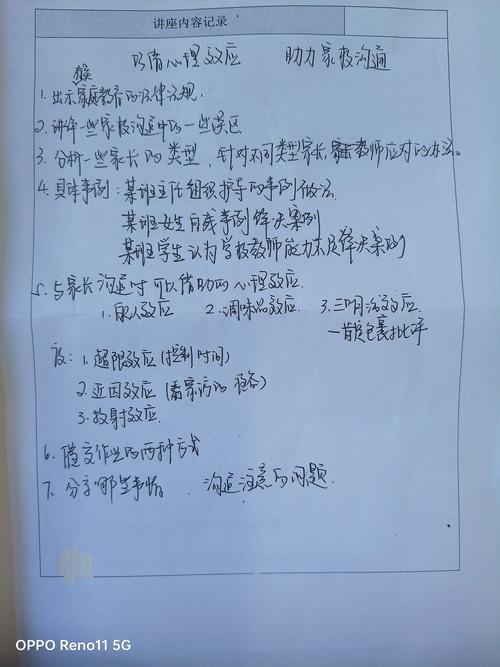 讲座内容记录
巧借心理效应 助力家校沟通
1. 出示家庭教育的法律法规.
2. 讲解一些家校沟通中的一些误区
3. 分析一些家长的类型, 针对不同类型家长, 教师应对的办法。
4. 具体事例: 某班主任组织指导的事例做法
某班女生自残事例解决案例
某班学生认为学校教师能力不足解决案例
5. 与家长沟通时可以借助的心理效应.
1. 自己人效应 2. 调味品效应. 3. 三明治效应.
一肯定包裹批评
1. 超限效应 (控制时间)
2. 近因效应 (看家访的
3. 放射效应.
6. 提交作业的两种方式
7. 分享哪些事情. 沟通注意的问题.
OPPO Reno11 5G